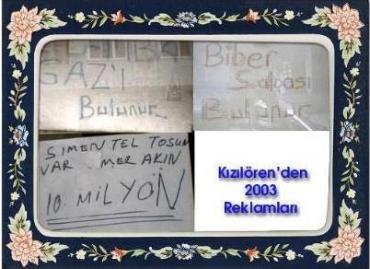 GAZ'I
Bulunur
Biber
Salçası
Bulunur
SİMENTEL TOSUN
VAR MER AKIN
10 MİLYON
Kızılören'den
2003
Reklamları